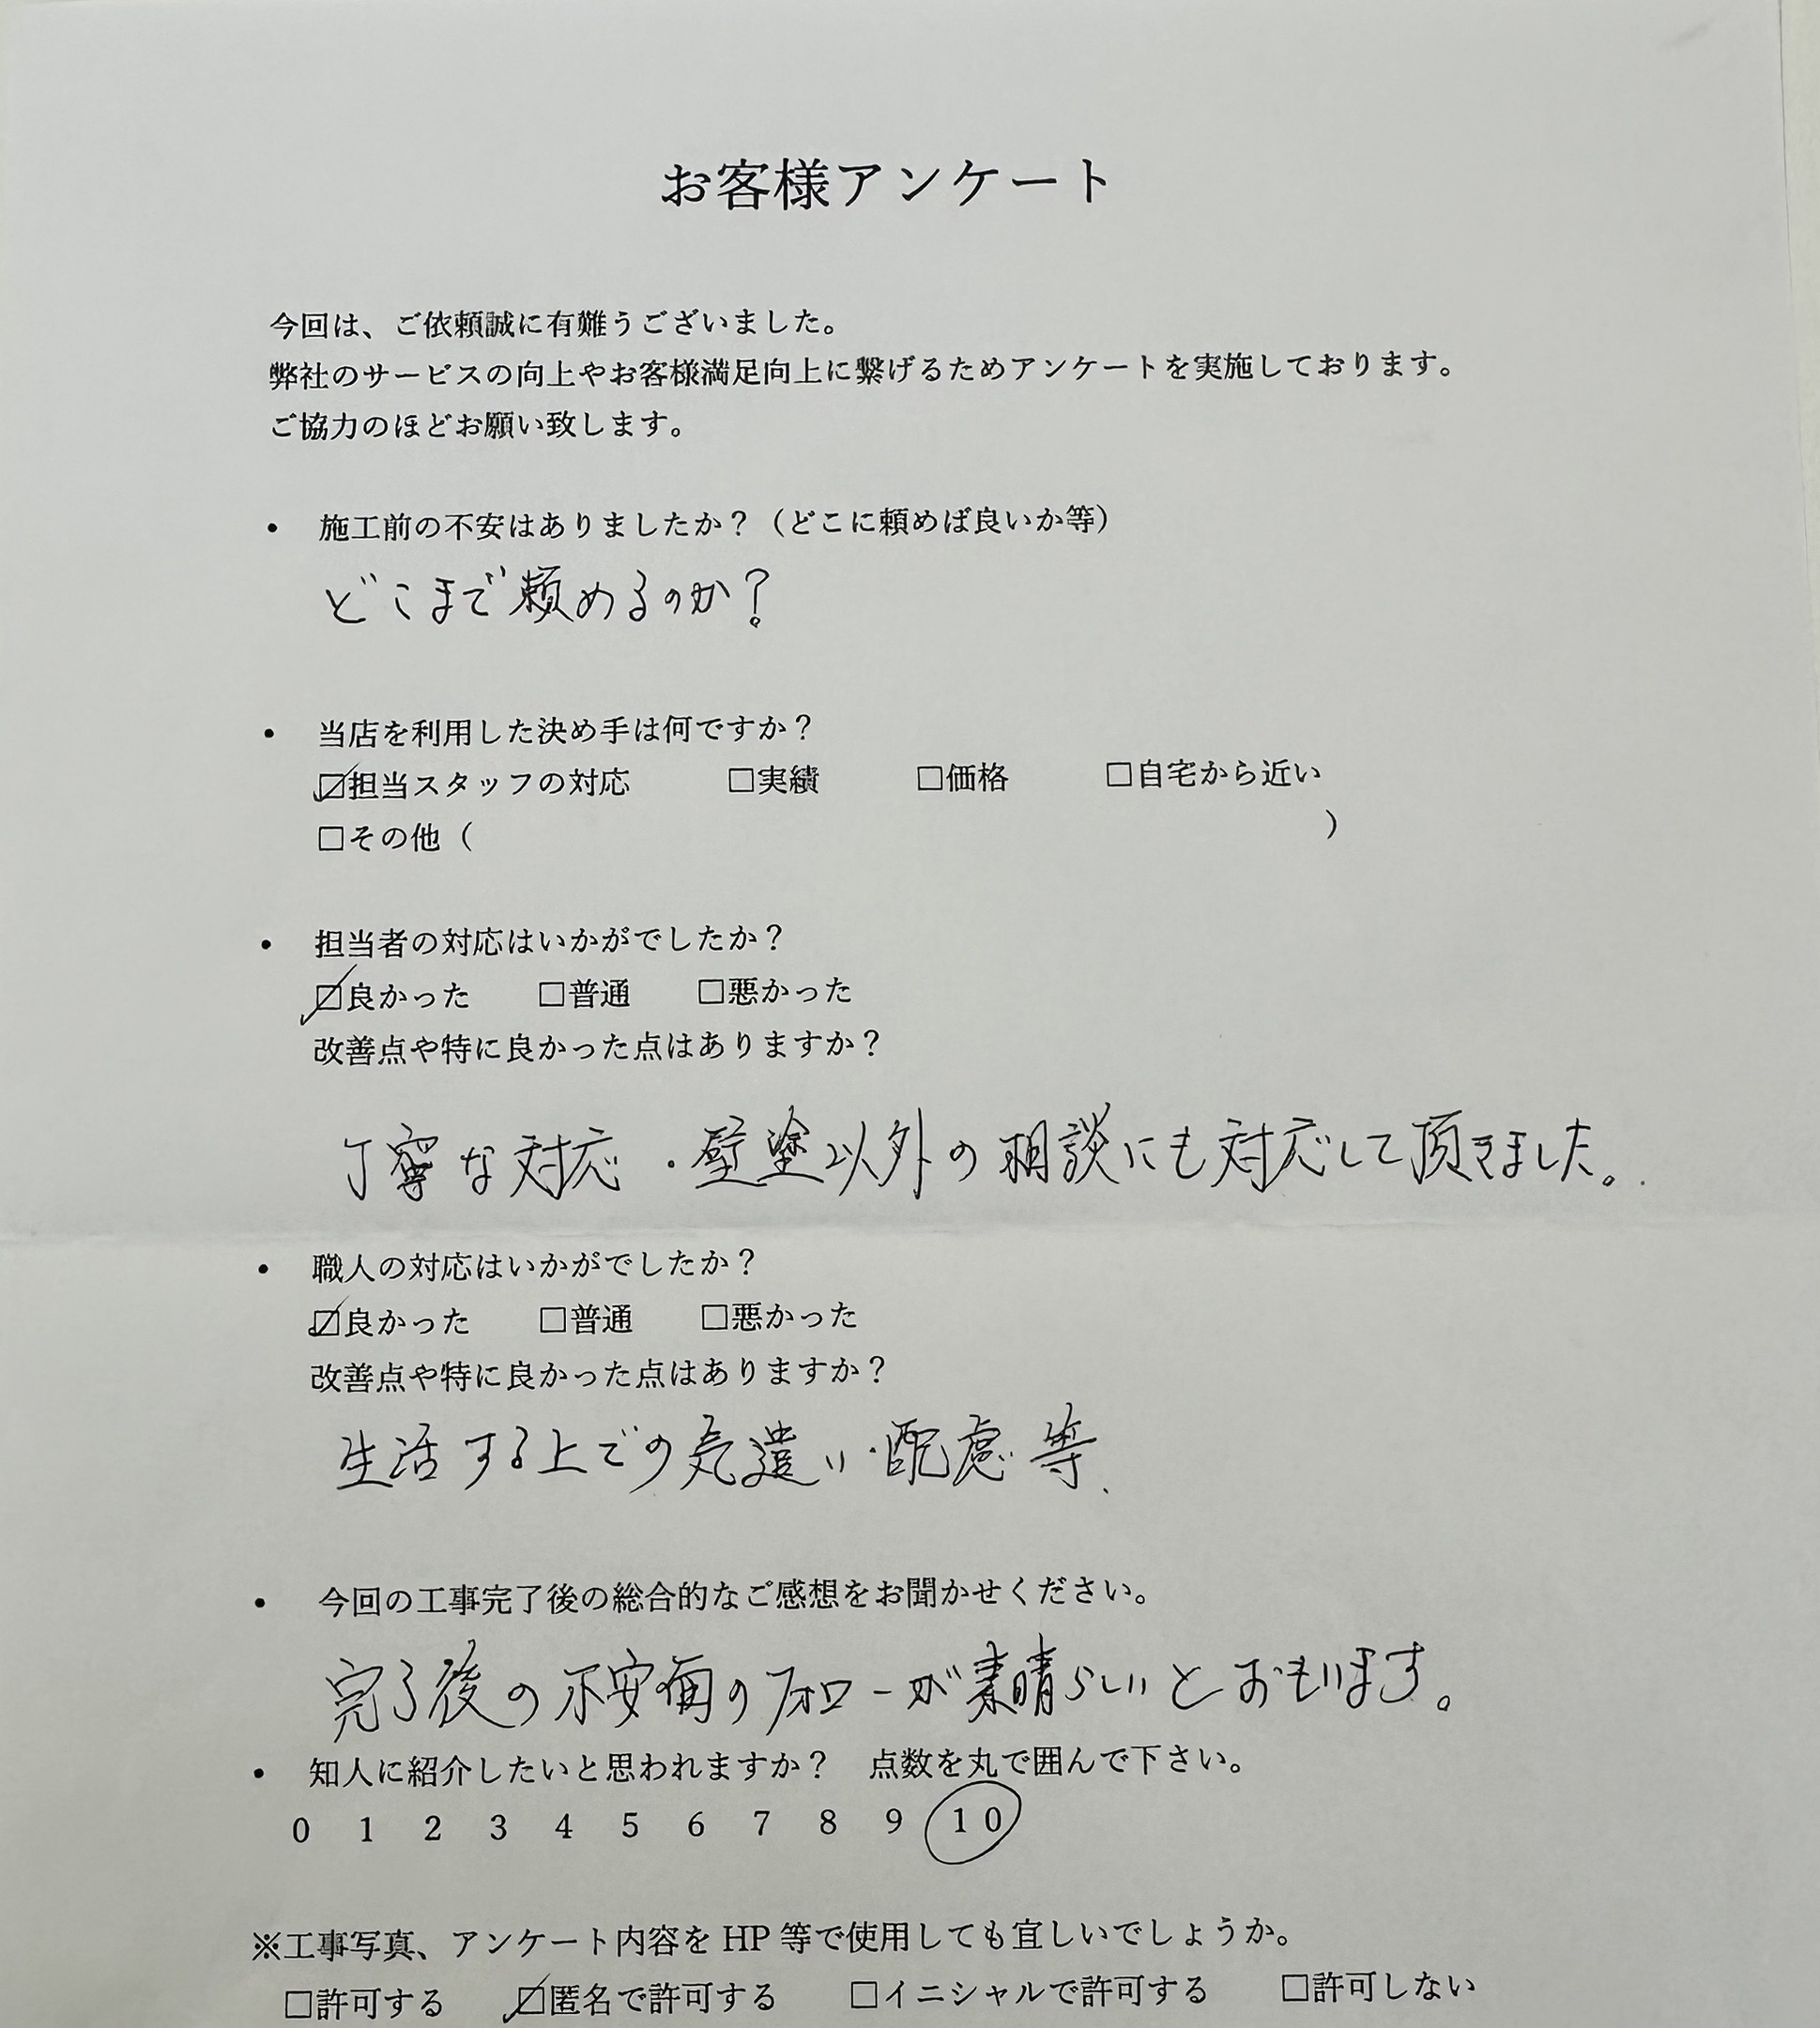 お客様アンケート
今回は、ご依頼誠に有難うございました。
弊社のサービスの向上やお客様満足向上に繋げるためアンケートを実施しております。
ご協力のほどお願い致します。
• 施工前の不安はありましたか？（どこに頼めば良いか等）
どこまで頼めるのか？
• 当店を利用した決め手は何ですか？
☑担当スタッフの対応 □実績 □価格 □自宅から近い
□その他（ ）
• 担当者の対応はいかがでしたか？
☑良かった □普通 □悪かった
改善点や特に良かった点はありますか？
丁寧な対応・壁塗以外の相談にも対応して頂きました。
• 職人の対応はいかがでしたか？
☑良かった □普通 □悪かった
改善点や特に良かった点はありますか？
生活する上での気遣い・配慮等、
• 今回の工事完了後の総合的なご感想をお聞かせください。
完了後の不安面のフォローが素晴らしいとおもいます。
• 知人に紹介したいと思われますか？ 点数を丸で囲んで下さい。
0 1 2 3 4 5 6 7 8 9 10
※工事写真、アンケート内容をHP等で使用しても宜しいでしょうか。
□許可する ☑匿名で許可する □イニシャルで許可する □許可しない